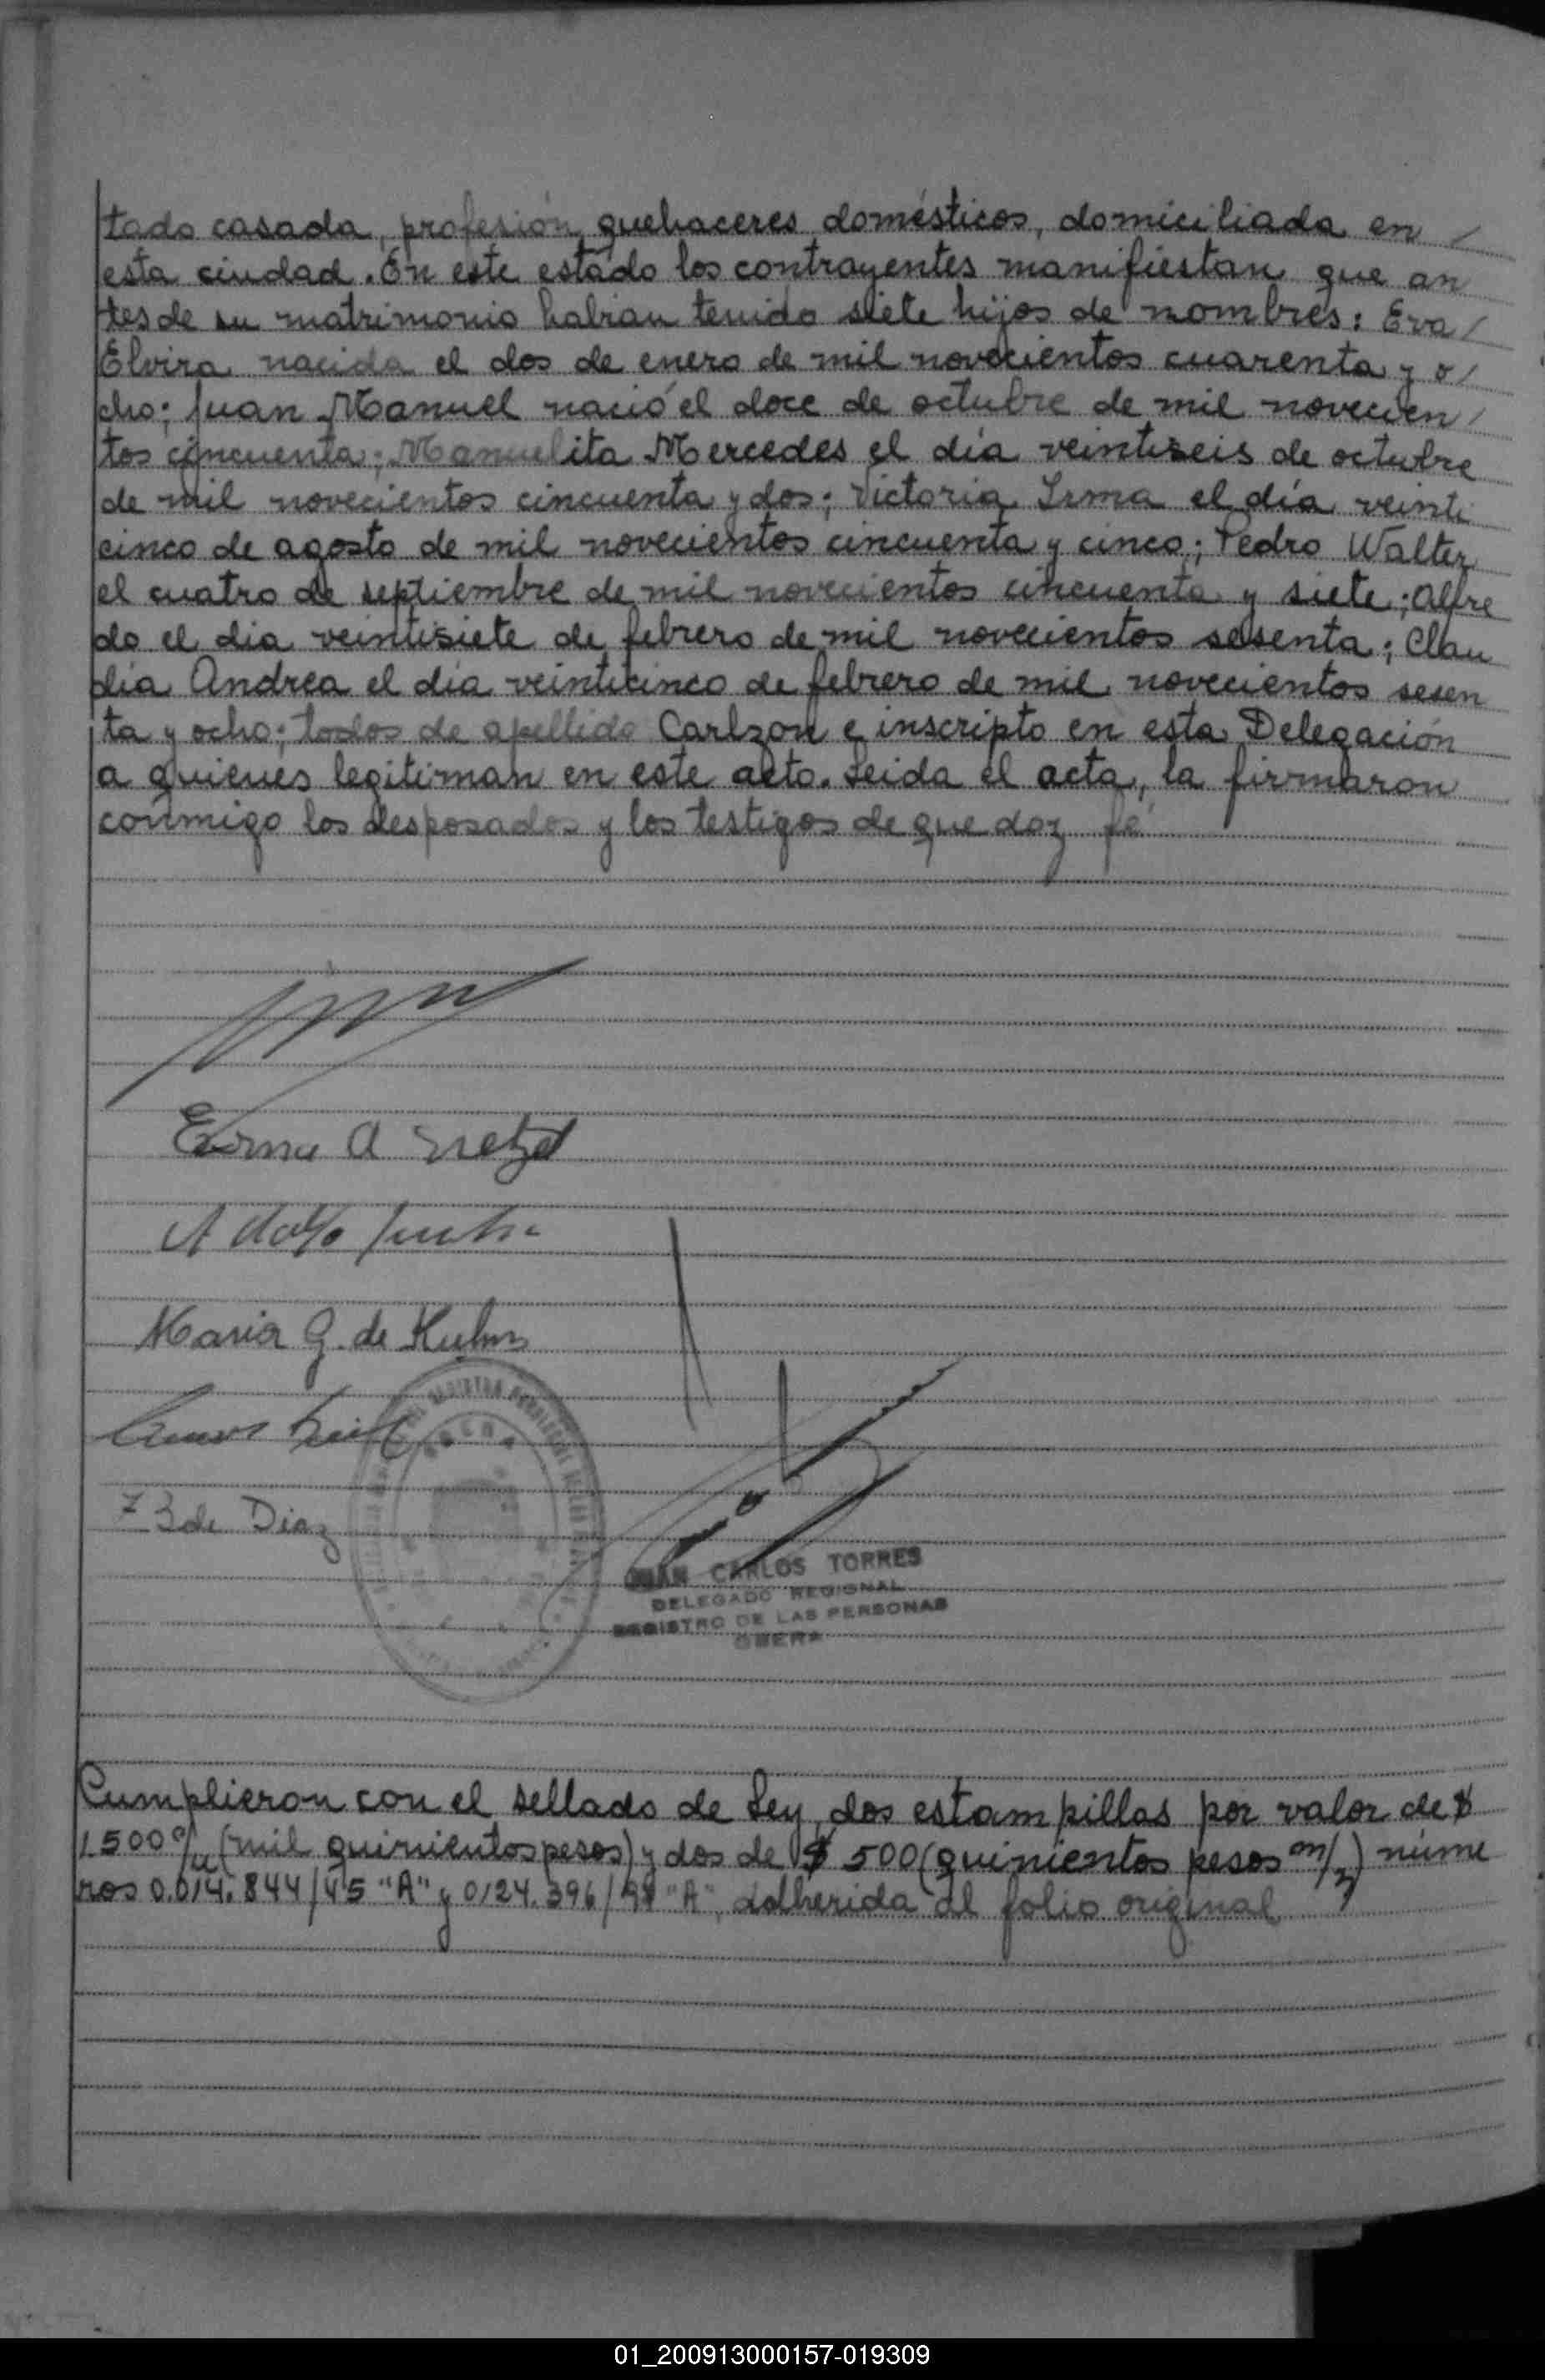 tado casada, profesión quehaceres domésticos, domiciliada en /
esta ciudad. En este estado los contrayentes manifiestan que an
tes de su matrimonio habían tenido siete hijos de nombres: Eva /
Elvira nacida el dos de enero de mil novecientos cuarenta y o /
cho; Juan Manuel nació el doce de octubre de mil novecien /
tos cincuenta; Manuelita Mercedes el día veintiseis de octubre
de mil novecientos cincuenta y dos; Victoria Irma el día veinti
cinco de agosto de mil novecientos cincuenta y cinco; Pedro Walter
el cuatro de septiembre de mil novecientos cincuenta y siete; Alfre
do el dia veintisiete de febrero de mil novecientos sesenta; Clau
dia Andrea el día veinticinco de febrero de mil novecientos sesen
ta y ocho; todos de apellido Carlzon e inscripto en esta Delegación
a quienes legitiman en este acto. Leida el acta, la firmaron
conmigo los desposados y los testigos de que doy fé
Erma A
Adolfo
Maria G. de Kuhn
de Diaz
JUAN CARLOS TORRES
DELEGADO REGIONAL
REGISTRO DE LAS PERSONAS
OBERA
Cumplieron con el sellado de Ley, dos estampillas por valor de $
1.500 (mil quinientos pesos) y dos de $ 500 (quinientos pesos m/n) núme
ros 0.014.844/45 "A" y 0124.396/ "A", adherida al folio original
01_200913000157-019309